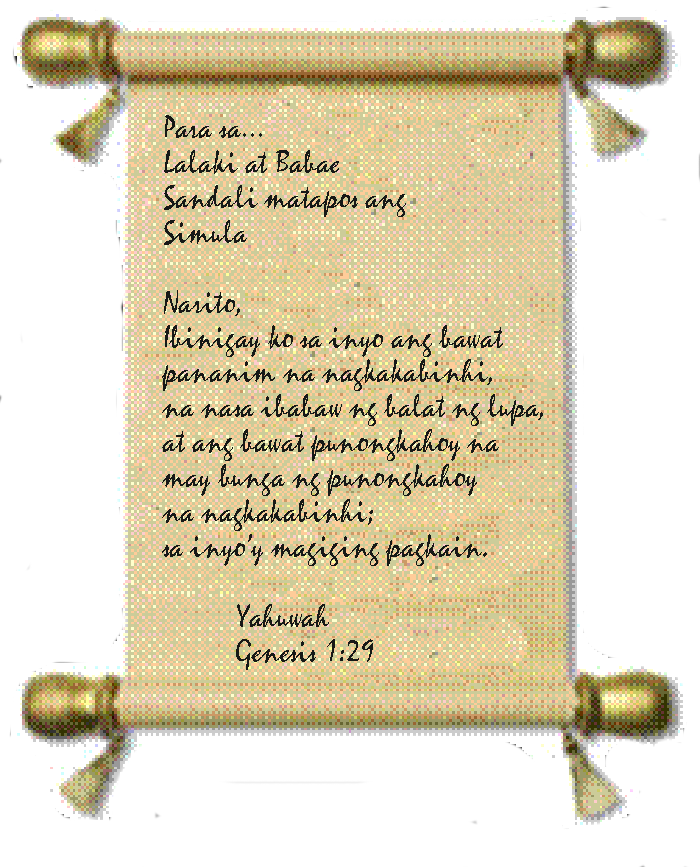 Para sa...
Lalaki at Babae
Sandali matapos ang
Simula
Narito,
Ibinigay ko sa inyo ang bawat
pananim na nagkakabinhi,
na nasa ibabaw ng balat ng lupa,
at ang bawat punongkahoy na
may bunga ng punongkahoy
na nagkakabinhi;
sa inyo'y magiging pagkain.
Yahuwah
Genesis 1:29